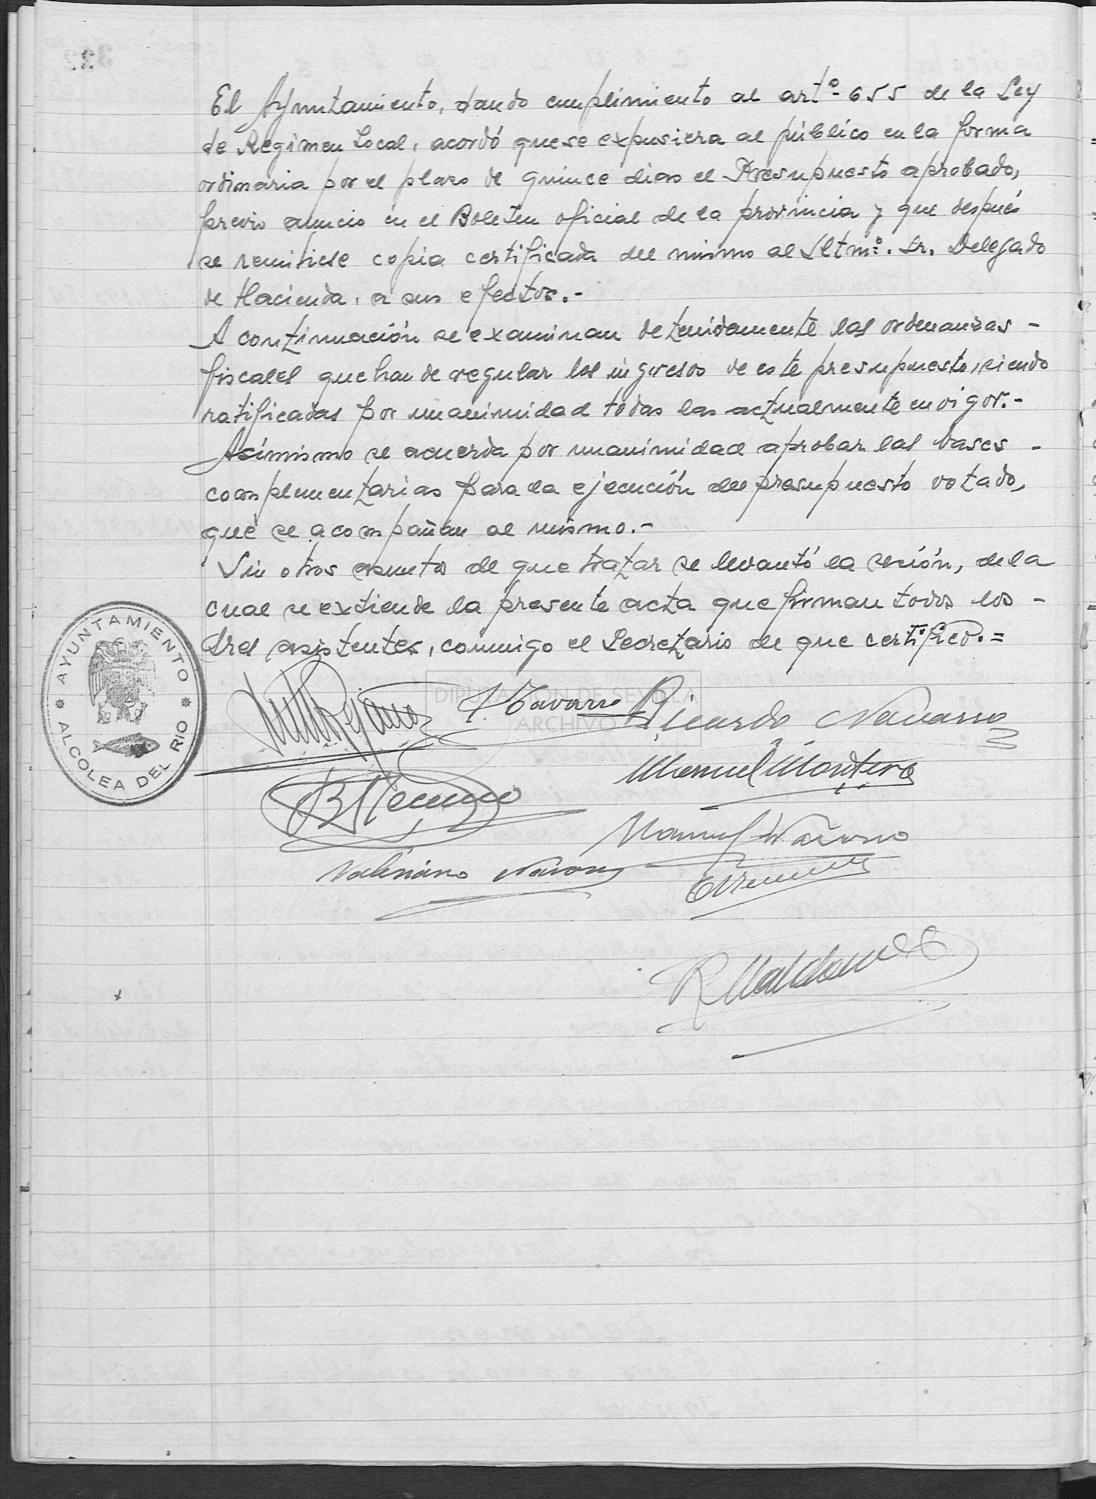 El Ayuntamiento, dando cumplimiento al artº. 655 de la Ley
de Régimen Local, acordó que se expusiera al público en la forma
ordinaria por el plazo de quince dias el Presupuesto aprobado,
previo anuncio en el Boletin oficial de la provincia y que después
se remitiese copia certificada del mismo al Iltmº. Sr. Delegado
de Hacienda, a sus efectos.-
A continuación se examinan detenidamente las ordenanzas -
fiscales que han de regular los ingresos de este presupuesto, siendo
ratificadas por unanimidad todas las actualmente en vigor.-
Asímismo se acuerda por unanimidad aprobar las bases -
complementarias para la ejecución del presupuesto votado,
que se acompañan al mismo.-
Sin otros asuntos de que tratar se levantó la sesión, de la
cual se extiende la presente acta que firman todos los -
Sres asistentes, conmigo el Secretario de que certifico.=
AYUNTAMIENTO
ALCOLEA DEL RIO
DIPUTACIÓN DE SEVILLA
ARCHIVO
Navarro
Ricardo Navarro
Manuel Montero
Manuel Navarro
Valeriano Navarro
R Maldonado